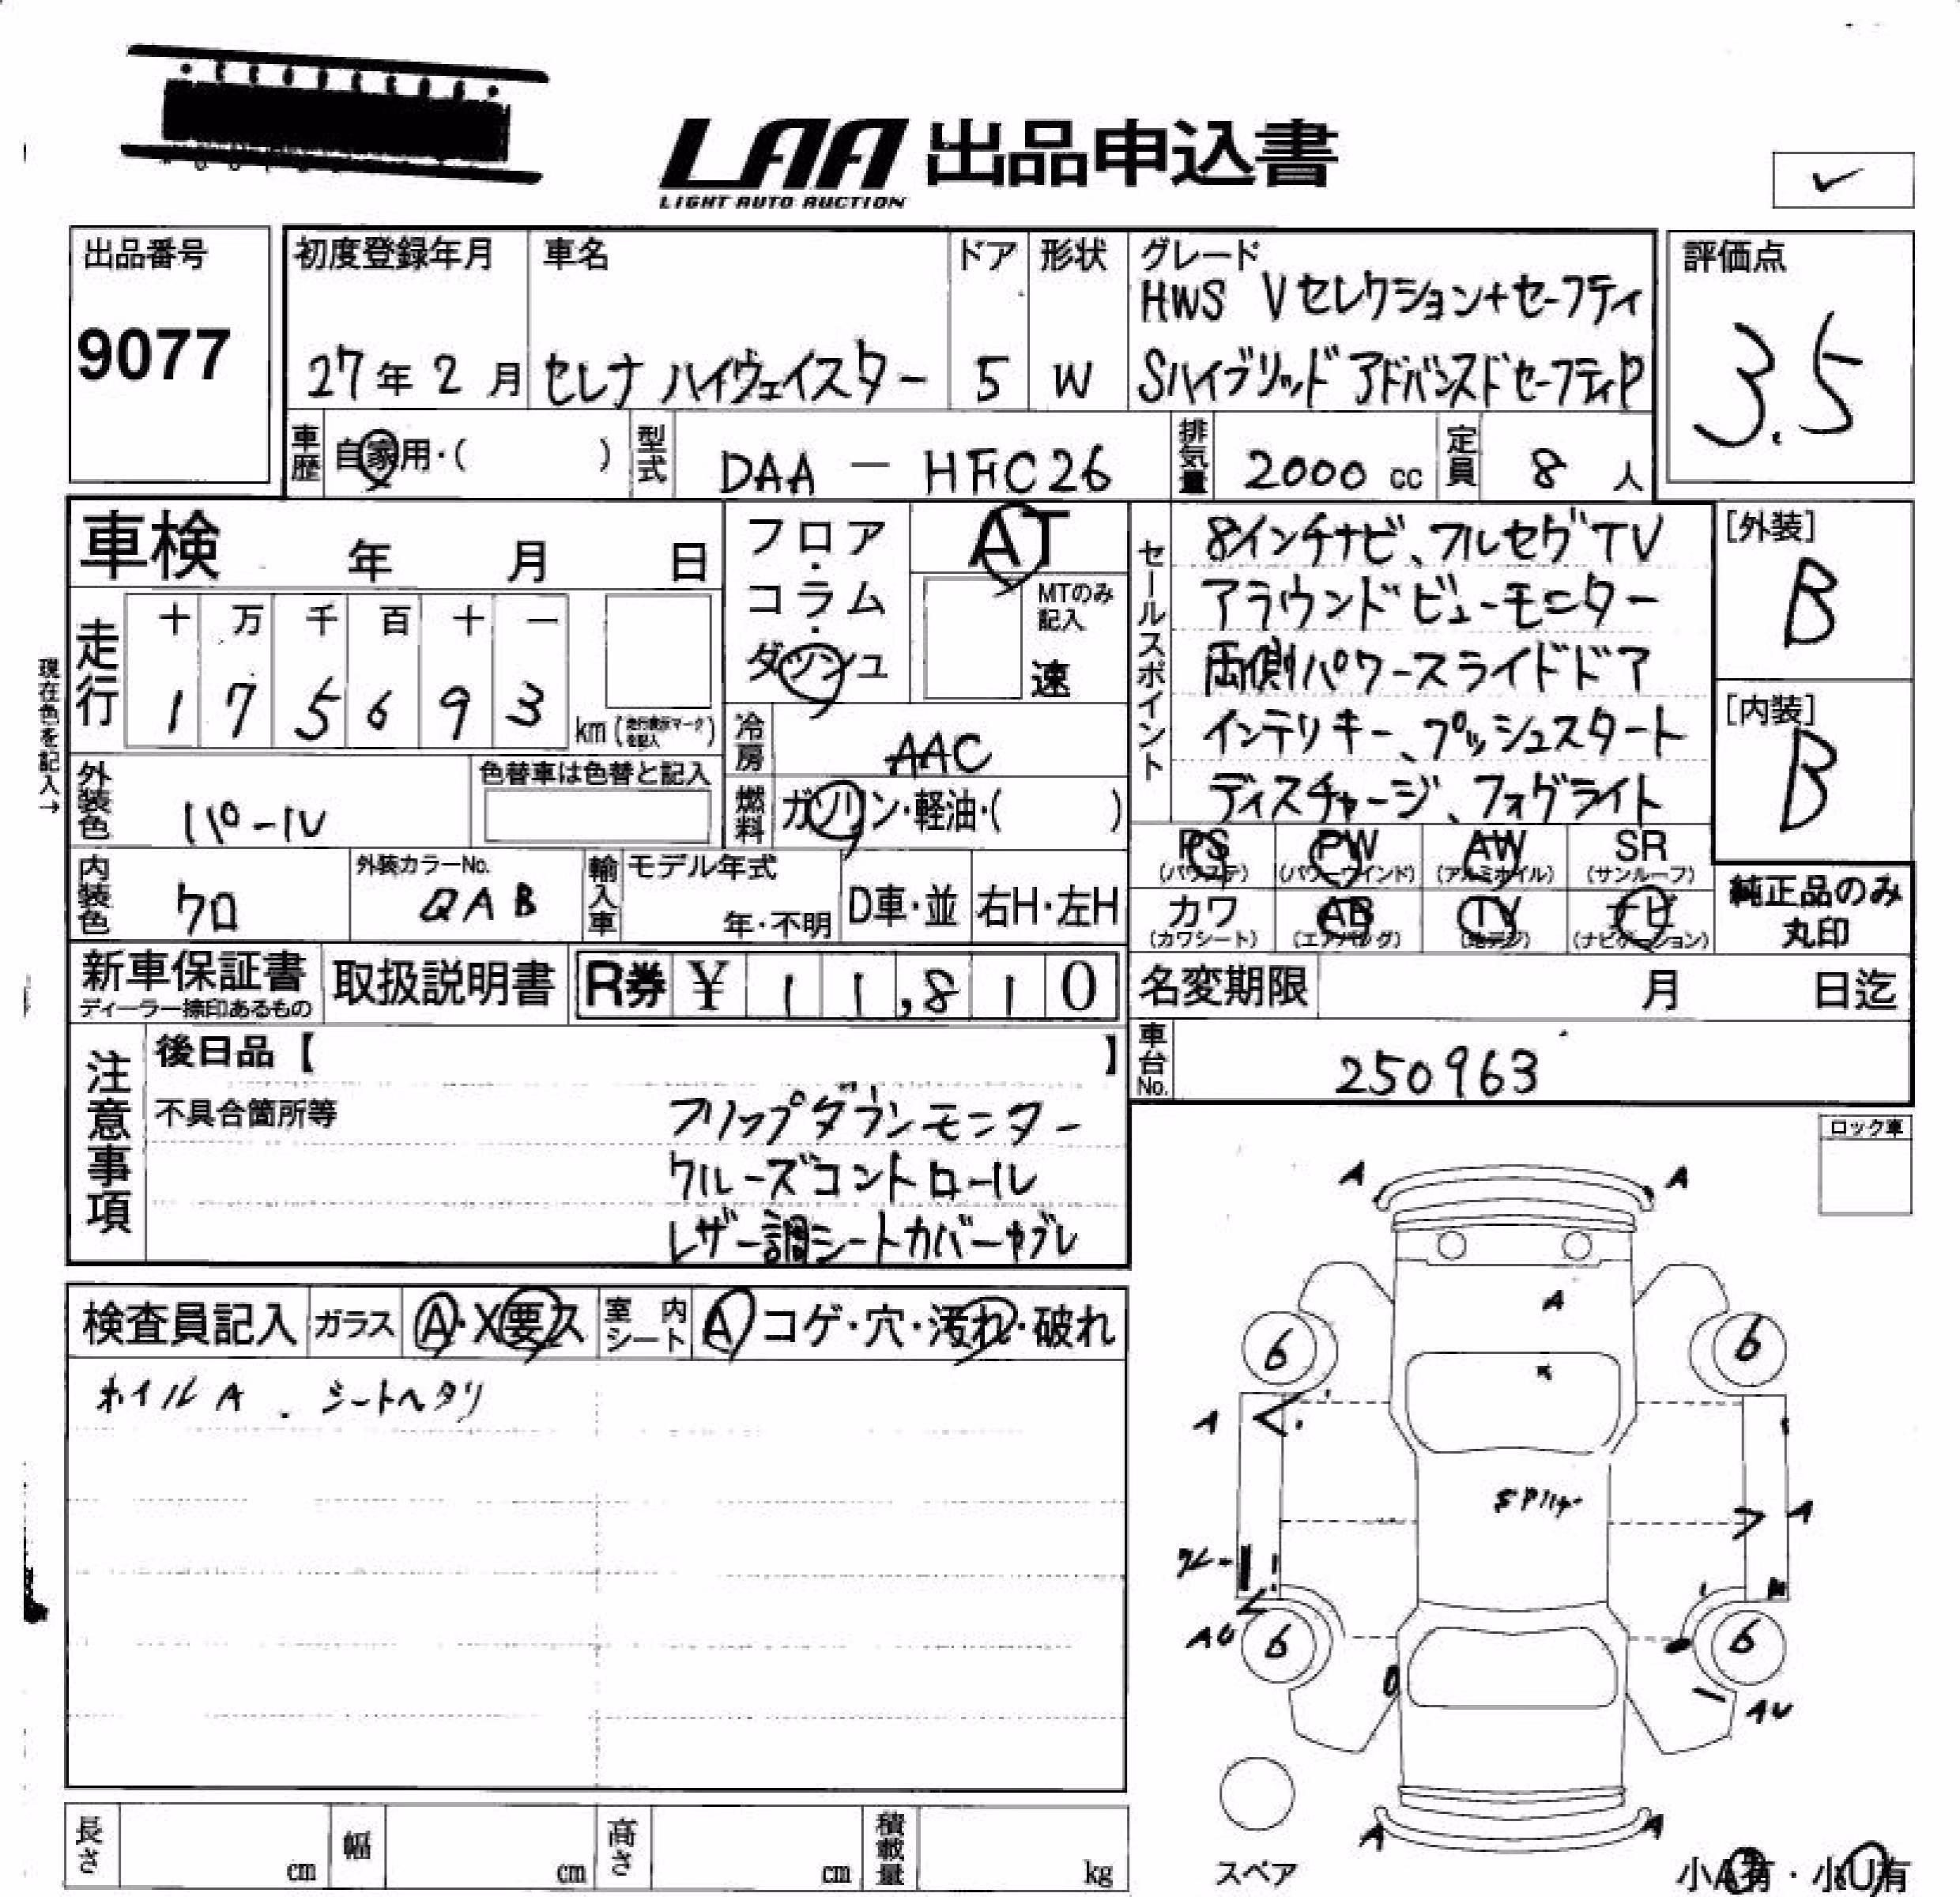 LAA 出品申込書
LIGHT AUTO AUCTION
出品番号
9077
初度登録年月
27年2月
車名
セレナ ハイウェイスター
ドア
5
形状
W
グレード
HWS Vセレクション+セーフティ
Sハイブリッド アドバンスドセーフティP
評価点
3.5
車歴 自家用・( )
型式 DAA-HFC26
排気量 2000cc
定員 8人
車検 年 月 日
フロア・コラム・ダッシュ
AT
MTのみ記入
速
セールスポイント
8インチナビ、フルセグTV
アラウンドビューモニター
両側パワースライドドア
インテリキー、プッシュスタート
ディスチャージ、フォグライト
[外装]
B
[内装]
B
現在色を記入→
走行
十 万 千 百 十 一
1 7 5 6 9 3 km(走行表示マークを記入)
冷房 AAC
燃料 ガソリン・軽油・( )
外装色 パール
色替車は色替と記入
内装色 クロ
外装カラーNo.
QAB
輸入車
モデル年式
年・不明
D車・並
右H・左H
PS (パワステ)
PW (パワーウインド)
AW (アルミホイル)
SR (サンルーフ)
カワ (カワシート)
AB (エアバッグ)
TV (地デジ)
ナビ (ナビゲーション)
純正品のみ
丸印
新車保証書
ディーラー捺印あるもの
取扱説明書
R券 ¥ 11,810
名変期限 月 日迄
車台No. 250963
注意事項
後日品【 】
不具合箇所等
フリップダウンモニター
クルーズコントロール
レザー調シートカバーヤブレ
ロック車
検査員記入
ガラス A・X要ス
室内シート A コゲ・穴・汚れ・破れ
ホイルA . シートヘタリ
A A
A
6 6
A
A
AU 6 6
AU
A A
スペア
小A有・小U有
長さ cm
幅 cm
高さ cm
積載量 kg